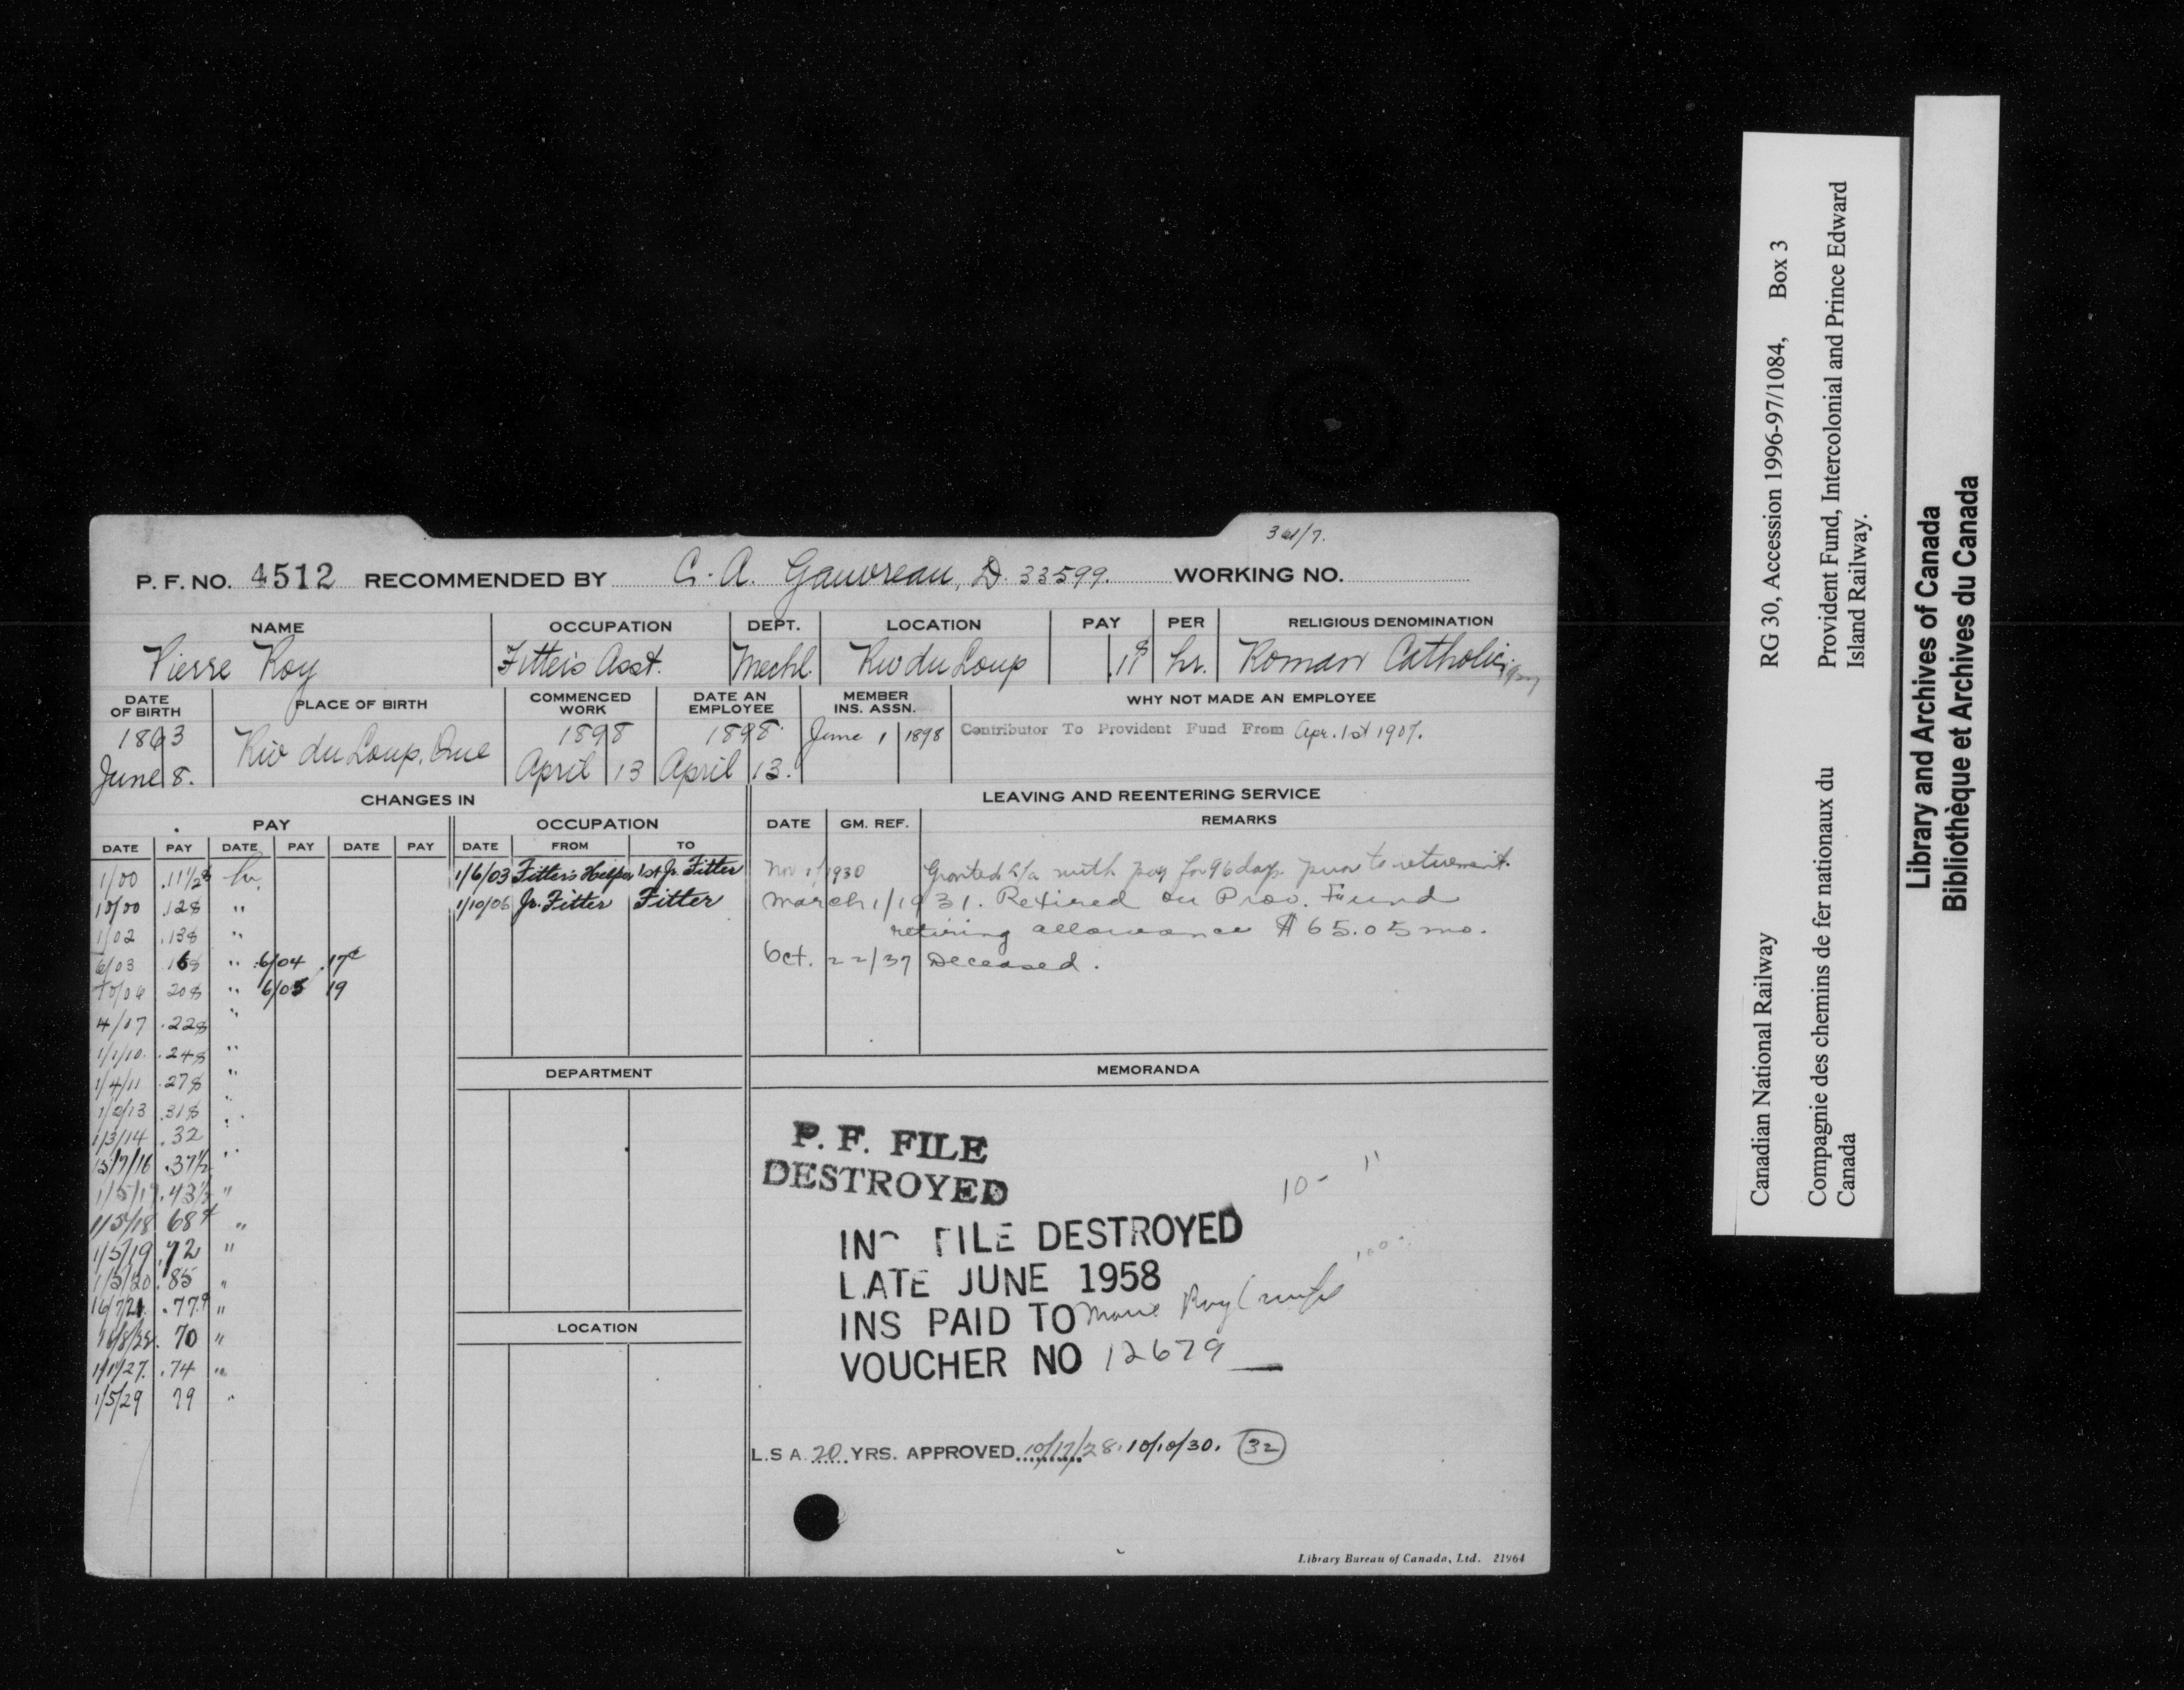 3 21/7.
P. F. NO. 4512 RECOMMENDED BY C. A. Gauvreau, D. 33599. WORKING NO.
NAME OCCUPATION DEPT. LOCATION PAY PER RELIGIOUS DENOMINATION
Pierre Roy Fitter's Asst. Mechl. Riv du Loup .11¢ hr. Roman Catholic
DATE OF BIRTH PLACE OF BIRTH COMMENCED WORK DATE AN EMPLOYEE MEMBER INS. ASSN. WHY NOT MADE AN EMPLOYEE
1863 Riv du Loup, Que 1898 1898. June 1 1898 Contributor To Provident Fund From Apr. 1st 1907.
June 8. April 13 April 13.
CHANGES IN
PAY OCCUPATION
DATE PAY DATE PAY DATE PAY DATE FROM TO
1/00 .11½¢ hr. 1/6/03 Fitter's Helper 1st Jr. Fitter
10/00 .12¢ " 1/10/06 Jr. Fitter Fitter
1/02 .13¢ "
6/03 .16¢ " 6/04 .17¢
10/06 20¢ " 6/05 19
4/07 .22¢ "
1/1/10. .24¢ "
1/4/11 .27¢ "
1/2/13 .31¢ "
1/3/14 .32 "
15/7/16 .37½ "
1/5/17 .43½ "
1/5/18 68¢ "
1/5/19 .72 "
1/5/20 .85 "
16/7/21. .77¢ "
16/8/22. 70 "
1/1/27. .74 "
1/5/29 79 "
DEPARTMENT
LOCATION
LEAVING AND REENTERING SERVICE
DATE GM. REF. REMARKS
Nov 1/1930 Granted L/a with pay for 96 days prior to retirement.
March 1/1931. Retired on Prov. Fund
retiring allowance $65.05 mo.
Oct. 22/37 Deceased.
MEMORANDA
P. F. FILE
DESTROYED
10 - 11
INS FILE DESTROYED
DATE JUNE 1958
INS PAID TO Marie Roy (wife
VOUCHER NO 12679
L.S A. 20 YRS. APPROVED 10/12/28. 10/10/30. 32
Library Bureau of Canada, Ltd. 21964
Canadian National Railway RG 30, Accession 1996-97/1084, Box 3
Compagnie des chemins de fer nationaux du Canada Provident Fund, Intercolonial and Prince Edward Island Railway.
Library and Archives of Canada
Bibliothèque et Archives du Canada